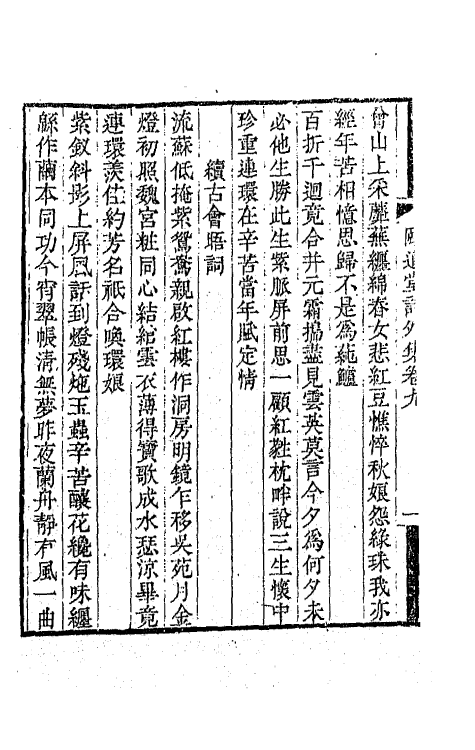 頤道堂詩外集卷九
一
曾山上采蘼蕪纏綿春女悲紅豆憔悴秋娘怨綠珠我亦
經年苦相憶思歸不是爲蒓鱸
百折千迴竟合并元霜擣盡見雲英莫言今夕爲何夕未
必他生勝此生紫脈屏前思一顧紅㲪枕畔說三生懷中
珍重連環在辛苦當年賦定情
續古會晤詞
流蘇低掩紫鴛鴦親啟紅樓作洞房明鏡乍移吳苑月金
燈初照魏宮粧同心結綰雲衣薄得寶歌成水瑟涼畢竟
連環羨佳約芳名祇合喚環娘
紫釵斜影上屏風話到燈殘灺玉蟲辛苦釀花纔有味纏
綿作繭本同功今宵翠帳清無夢昨夜蘭舟靜有風一曲